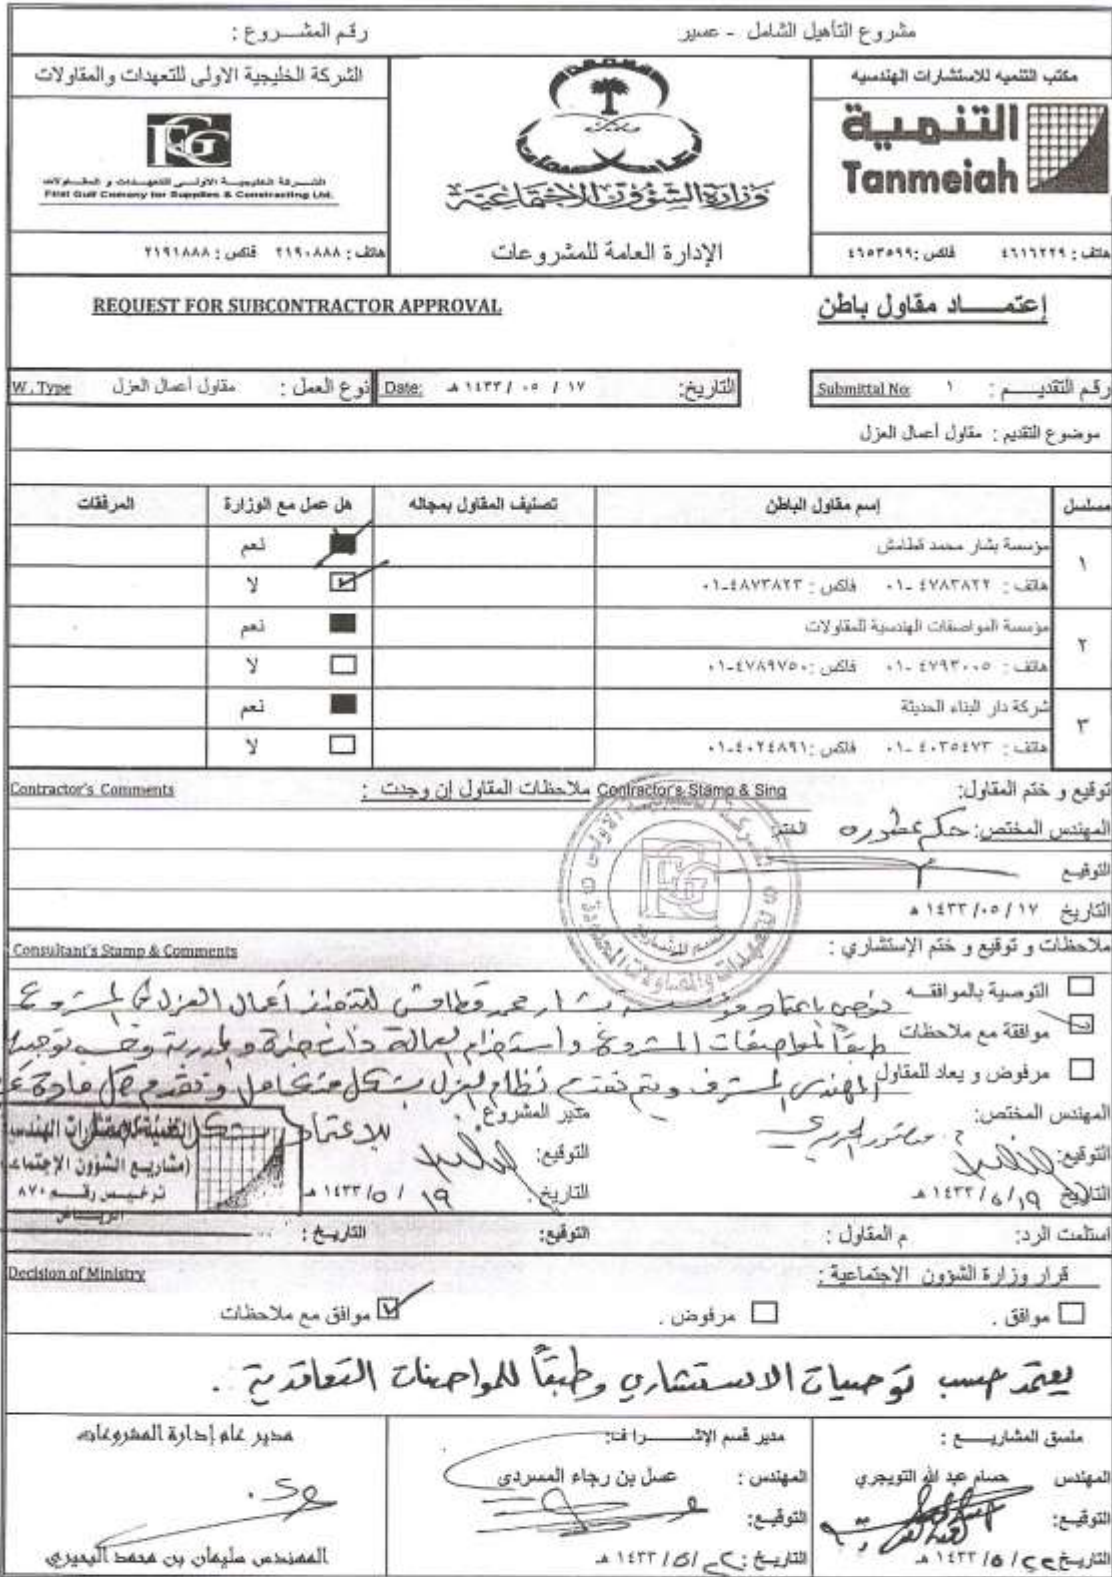 مشروع التأهيل الشامل - عسير
رقم المشـــروع :
مكتب التنميه للاستشارات الهندسيه
التنمية
Tanmeiah
هاتف : ٤٦١٦٢٢٩ فاكس :٤٦٥٣٥٩٩
وزارة الشؤون الاجتماعية
الإدارة العامة للمشروعات
الشركة الخليجية الاولى للتعهدات والمقاولات
FGC
الشــركة الخليجيــة الاولــى للتعهــدات و المقــاولات
First Gulf Comony for Supplies & Constracting Ltd.
هاتف : ٢١٩٠٨٨٨ فاكس : ٢١٩١٨٨٨
إعتمـــــاد مقاول باطن
REQUEST FOR SUBCONTRACTOR APPROVAL
رقم التقديـــــم : ١ Submittal No:
التاريخ: ١٧ / ٠٥ / ١٤٣٣ هـ Date:
نوع العمل : مقاول أعمال العزل W. Type
موضوع التقديم : مقاول أعمال العزل
مسلسل إسم مقاول الباطن تصنيف المقاول بمجاله هل عمل مع الوزارة المرفقات
١ مؤسسة بشار محمد قطامش نعم
هاتف : ٤٧٨٣٨٢٢ -٠١ فاكس : ٤٨٧٣٨٢٣-٠١ لا
٢ مؤسسة المواصفات الهندسية للمقاولات نعم
هاتف : ٤٧٩٣٠٠٥ -٠١ فاكس :٤٧٨٩٧٥٠-٠١ لا
٣ شركة دار البناء الحديثة نعم
هاتف : ٤٠٣٥٤٧٣ -٠١ فاكس :٤٠٢٤٨٩١-٠١ لا
توقيع و ختم المقاول: Contractor's Stamp & Sing
ملاحظات المقاول إن وجدت : Contractor's Comments
المهندس المختص: الختم:
التوقيع
التاريخ ١٤٣٣/٠٥/١٧ هـ
ملاحظات و توقيع و ختم الإستشاري : Consultant's Stamp & Comments
التوصية بالموافقـه
موافقة مع ملاحظات
مرفوض و يعاد للمقاول
نوصي باعتماد مؤسسة بشار محمد قطامش للتنفيذ أعمال العزل في المشروع
طبقاً لمواصفات المشروع واستخدام العمالة ذات خبرة و المدربة وحسب توجيهات
المهندس المشرف ويتم تقديم نظام العزل بشكل متكامل وتقدم كل مادة
للاعتماد بشكل
المهندس المختص:
مدير المشروع:
التوقيع:
التوقيع:
التاريخ ١٩ / ٥ / ١٤٣٣ هـ
التاريخ: ١٩ / ٥ / ١٤٣٣ هـ
(مشاريع الشؤون الإجتماعية
ترخيـس رقـــم ٨٧٠
الريـــاض
استلمت الرد: م المقاول : التوقيع: التاريخ :
قرار وزارة الشؤون الاجتماعية : Decision of Ministry
موافق .
مرفوض .
موافق مع ملاحظات
يعتمد حسب توصيات الاستشاري وطبقاً للمواصفات التعاقدية .
منسق المشاريـــع :
المهندس حسام عبد الله التويجري
التوقيـع:
التاريخ ٢٢ / ٥ / ١٤٣٣ هـ
مدير قسم الإشــــــراف:
المهندس : عسل بن رجاء المسردي
التوقيع:
التاريخ : ١٤٣٣ هـ
مدير عام إدارة المشروعات
المهندس سليمان بن محمد اليحيري